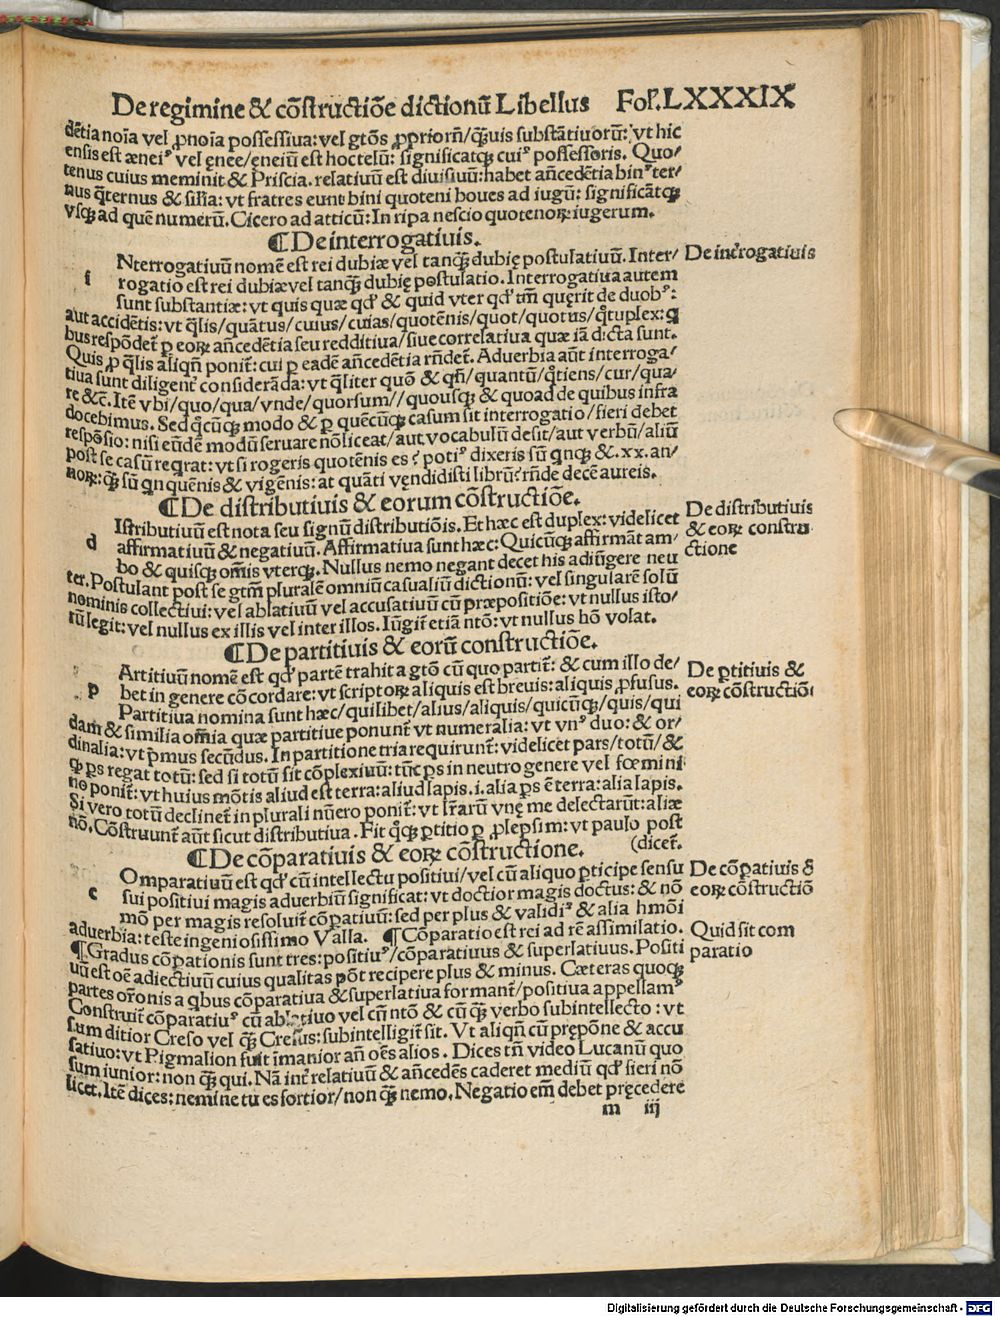 De regimine & cōſtructiōe dictionū Libellus Fol. LXXXIX
dētia noīa vel ꝓnoīa poſſeſſiua: vel gtōs ꝓpriorū/quis ſubſtātiuorū: vt hic
enſis eſt æneiꝰ vel ęnee/eneiū eſt hoc telū: ſignificatqꝫ cuiꝰ poſſeſſoris. Quo/
tenus cuius meminit & Priſcia. relatiuū eſt diuiſiuū: habet añcedētia binꝰ ter/
nus q̄ternus & ſilia: vt fratres eunt bini quoteni boues ad iugū: ſignificātqꝫ
vſqꝫ ad quē numerū. Cicero ad atticū: In ripa neſcio quotenoꝝ iugerum.
¶ De interrogatiuis.
Nterrogatiuū nomē eſt rei dubiæ vel tanqꝫ̄ dubię poſtulatiuū. Inter/ De int̄rogatiuis
i rogatio eſt rei dubiæ vel tanqꝫ̄ dubię poſtulatio. Interrogatiua autem
ſunt ſubſtantiæ: vt quis quæ qd' & quid vter qd' tm̄ quęrit de duobꝰ:
aut accidētis: vt q̄lis/quātus/cuius/cuias/quotēnis/quot/quotus/q̄tuplex: q
bus reſpōdet̄ ꝑ eoꝝ añcedētia ſeu redditiua/ſiue correlatiua quæ iā dicta ſunt.
Quis ꝓ q̄lis aliqñ ponit̄: cui ꝑ eadē añcedētia rñdet̄. Aduerbia aūt interroga/
tiua ſunt diligent̄ conſiderāda: vt q̄liter quō & qñ/quantū/q̄tiens/cur/qua/
re &c̄. Itē vbi/quo/qua/vnde/quorſum//quouſqꝫ & quoad de quibus infra
docebimus. Sed q̄cūqꝫ modo & ꝑ quēcūqꝫ caſum ſit interrogatio/fieri debet
reſpōſio: niſi eūdē modū ſeruare nō liceat/aut vocabulū deſit/aut verbū/aliū
poſt ſe caſū reqrat: vt ſi rogeris quotēnis es? potiꝰ dixeris ſū qnqꝫ &.xx. an/
noꝝ: qꝫ̄ ſū qnquēnis & vigēnis: at quāti vęndidiſti librū? rñde decē aureis.
¶ De diſtributiuis & eorum cōſtructiōe.
Iſtributiuū eſt nota ſeu ſignū diſtributiōis. Et hæc eſt duplex: videlicet De diſtributiuis
d affirmatiuū & negatiuū. Affirmatiua ſunt hæc: Quicūqꝫ affirmat am/ & eoꝝ conſtru
bo & quiſqꝫ om̄is vterqꝫ. Nullus nemo negant decet his adiūgere neu ctione
ter. Poſtulant poſt ſe gtm̄ pluralē omniū caſualiū dictionū: vel ſingularē ſolū
nominis collectiui: vel ablatiuū vel accuſatiuū cū præpoſitiōe: vt nullus iſto/
rū legit: vel nullus ex illis vel inter illos. Iūgit̄ etiā ntō: vt nullus hō volat.
¶ De partitiuis & eorū conſtructiōe.
Artitiuū nomē eſt qd' partē trahit a gtō cū quo partit̄: & cum illo de/ De ꝑtitiuis &
p bet in genere cōcordare: vt ſcriptoꝝ aliquis eſt breuis: aliquis ꝓfuſus. eoꝝ cōſtructiōe
Partitiua nomina ſunt hæc/quilibet/alius/aliquis/quicūqꝫ/quis/qui
dam & ſimilia om̄ia quæ partitiue ponunt̄ vt numeralia: vt vnꝰ duo: & or/
dinalia: vt p̄mus ſecūdus. In partitione tria requirunt̄: videlicet pars/totū/&
qꝫ ps regat totū: ſed ſi totū ſit cōplexiuū: tūc ps in neutro genere vel fœmini
no ponit̄: vt huius mōtis aliud eſt terra: aliud lapis. i. alia ps ē terra: alia lapis.
Si vero totū declinet̄ in plurali nūero ponit̄: vt lr̄arū vnę me delectarūt: aliæ
nō. Cōſtruunt̄ aūt ſicut diſtributiua. Fit q̄qꝫ ꝑtitio ꝑ ꝓlepſim: vt paulo poſt
¶ De cōparatiuis & eoꝝ cōſtructione. (dicet̄.
Omparatiuū eſt qd' cū intellectu poſitiui/vel cū aliquo ꝑticipe ſenſu De cōꝑatiuis &
c ſui poſitiui magis aduerbiū ſignificat: vt doctior magis doctus: & nō eoꝝ cōſtructiō
mō per magis reſoluit̄ cōꝑatiuū: ſed per plus & validiꝰ & alia hmōi
aduerbia: teſte ingenioſiſſimo Valla. ¶ Cōparatio eſt rei ad rē aſſimilatio. Quid ſit com
¶ Gradus cōpationis ſunt tres: poſitiuꝰ/cōparatiuus & ſuperlatiuus. Poſiti paratio
uū eſt oē adiectiuū cuius qualitas pōt recipere plus & minus. Cæteras quoqꝫ
partes or̄onis a qbus cōparatiua & ſuperlatiua formant̄/poſitiua appellamꝰ
Conſtruit̄ cōparatiuꝰ cū ablatiuo vel cū ntō & cū qꝫ̄ verbo ſubintellecto: vt
ſum ditior Creſo vel qꝫ̄ Creſus: ſubintelligit̄ ſit. Vt aliqñ cū prępōne & accu
ſatiuo: vt Pigmalion fuit īmanior añ oēs alios. Dices tñ video Lucanū quo
ſum iunior: non qꝫ̄ qui. Nā int̄ relatiuū & añcedēs caderet mediū qd' fieri nō
licet. Itē dices: nemine tu es fortior/non qꝫ̄ nemo. Negatio em̄ debet pręcedere
m iij
Digitalisierung gefördert durch die Deutsche Forschungsgemeinschaft - DFG